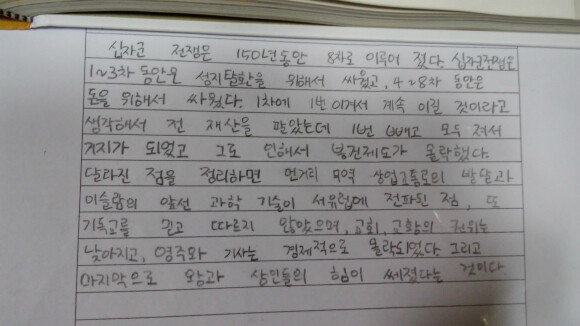 십자군 전쟁은 150년동안 8차로 이루어 졌다. 십자군전쟁은
1~3차 동안은 성지탈환을 위해서 싸웠고, 4~8차 동안은
돈을 위해서 싸웠다. 1차에 1번 이겨서 계속 이길 것이라고
생각해서 전 재산을 팔았는데 1번 빼고 모두 져서
거지가 되었고 그로 인해서 봉건제도가 몰락했다.
달라진 점을 정리하면 먼거리 무역 상업교통로의 발달과
이슬람의 앞선 과학 기술이 서유럽에 전파된 점, 또
기독교를 믿고 따르지 않았으며, 교회, 교황의 권위는
낮아지고, 영주와 기사는 경제적으로 몰락되었다. 그리고
마지막으로 왕과 상인들의 힘이 쎄졌다는 것이다.